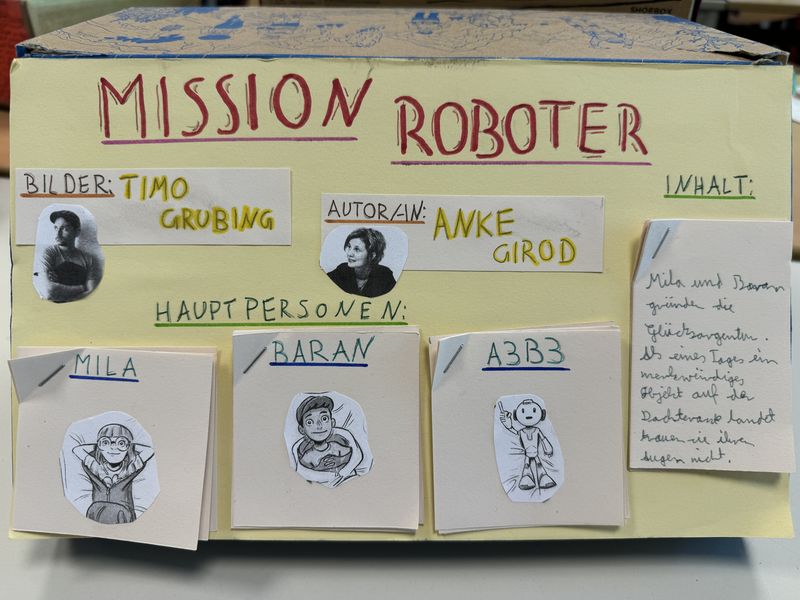 SHOEBOX
MISSION ROBOTER
BILDER: TIMO
GRUBING
AUTOR/-IN: ANKE
GIROD
INHALT:
Mila und Baran
gründen die
Glücksagenten.
Als eines Tages ein
merkwürdiges
Objekt auf der
Dachterasse landet
trauen sie ihren
Augen nicht.
HAUPTPERSONEN:
MILA
BARAN
A3B3